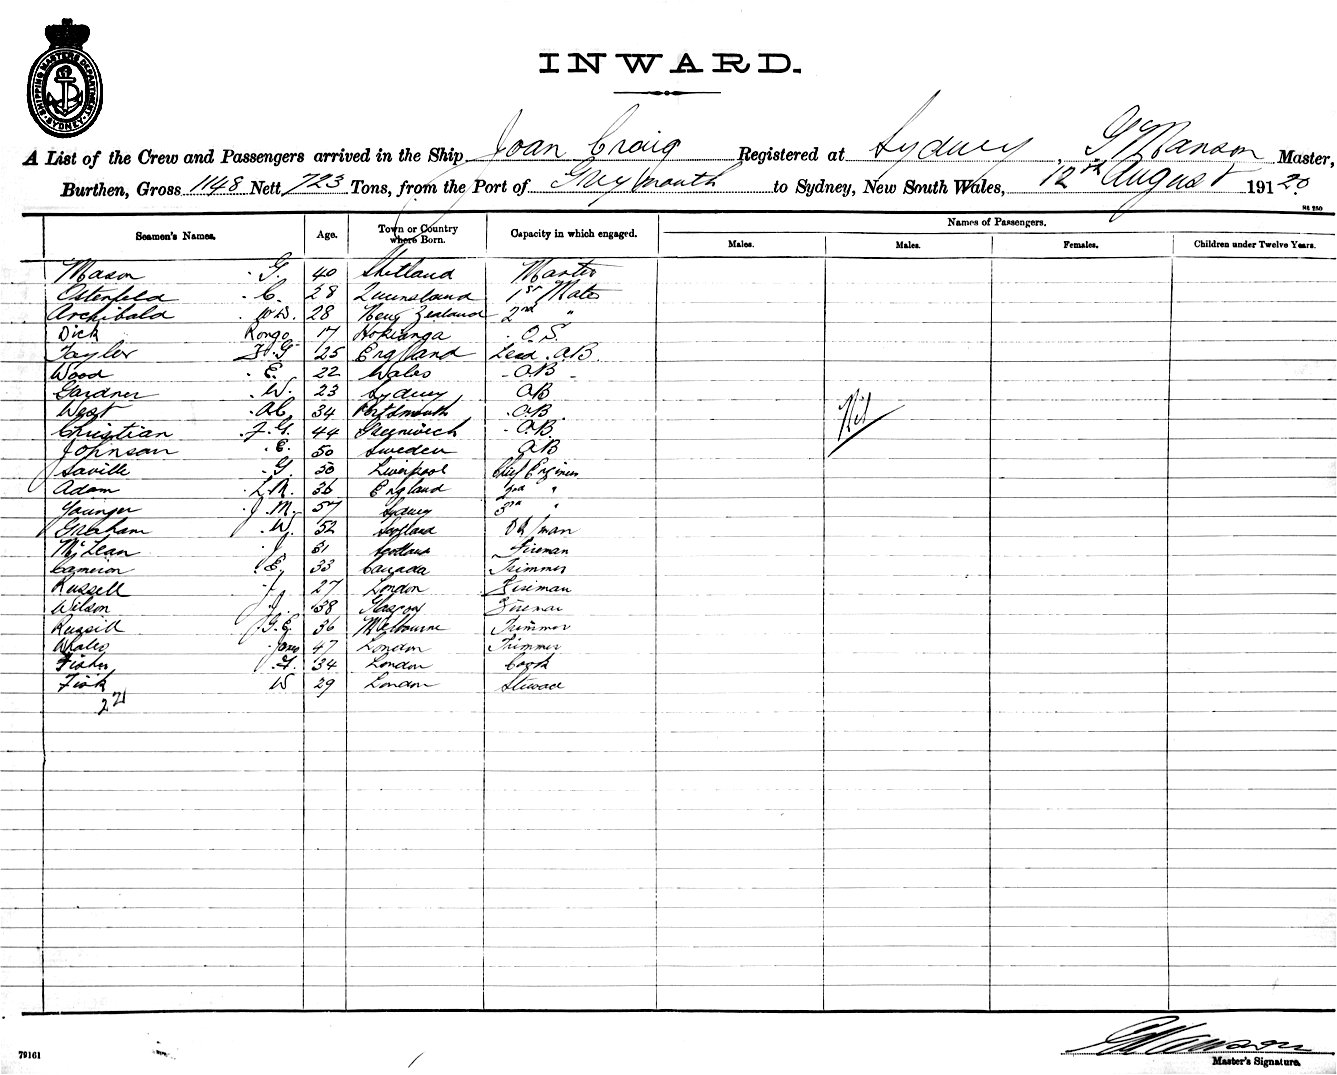 SHIPPING MASTERS DEPARTMENT SYDNEY
INWARD.
A List of the Crew and Passengers arrived in the Ship Joan Craig Registered at Sydney, G Manson Master,
Burthen, Gross 1148 Nett 723 Tons, from the Port of Greymouth to Sydney, New South Wales, 12th August 19120
Seamen's Names. Age. Town or Country where Born. Capacity in which engaged. Names of Passengers.
Males. Males. Females. Children under Twelve Years.
Mason G. 40 Shetland Master
Ostenfeld C. 28 Queensland 1st Mate
Archibald W.D. 28 New Zealand 2nd "
Dick Rongo 17 Hokianga O.S.
Tayler F.G. 25 England Lead. A.B.
Wood E. 22 Wales A.B.
Gardner W. 23 Sydney A.B.
West A.C. 34 Portsmouth A.B.
Nil
Christian F.G. 44 Greenwich A.B.
Johnson E. 50 Sweden A.B.
Saville G. 50 Liverpool Chief Engineer
Adam L.M. 36 England 2nd "
Younger J.M. 57 Sydney 3rd "
Graham W. 52 Scotland
McLean J. 51 Scotland Fireman
Cameron E. 33 Canada Trimmer
Russell J. 27 London Fireman
Wilson J. 38 Glasgow Fireman
Russill J.G.E. 36 Melbourne Trimmer
Wales James 47 London Trimmer
Fisher F. 34 London Cook
Fisk W 29 London Steward
22
79161
Master's Signature.